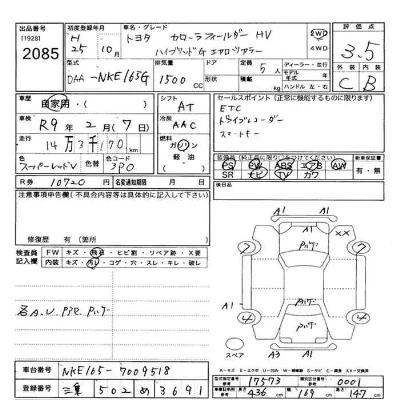 出品番号 119281 2085
初度登録年月 H 25年 10月
車名・グレード トヨタ カローラフィールダー HV ハイブリッドG エアロツアラー
2WD 4WD
評価点 3.5
型式 DAA-NKE165G
排気量 1500 CC
形状
ドア
積載 kg
定員 5 人
ディーラー・並行
モデル年式 年
ハンドル 左・右
外装 内装
C B
車歴 自家用・( )
シフト AT
セールスポイント(正常に機能するものに限ります)
ETC
ドライブレコーダー
スマートキー
車検 R9年 2月(7日)
冷房 AAC
走行 14万3千170 km
燃料 ガソリン 軽油
色 スーパーレッドV 色替 色コード 3P0
装備品(純正品に限り○をつけてください)
PS PW ABS エアB
SR ナビ TV カワ
新車保証書 有・無
R券 10720 円 名変通知期限 月 日
後日品
注意事項申告欄(不具合内容等は具体的に記入して下さい)
修復歴 有(箇所 )
検査員記入欄
FW キズ・飛石・ヒビ割・リペア跡・X要
内装 キズ・汚レ・コゲ・穴・スレ・キレ・破レ
A1
A1
A1
XX
A1
A3
A1
スペア
車台番号 NKE165-7009518
登録番号 三重 502 め 3691
型式指定番号 17573
類別区分番号 0001
長さ 436 cm 幅 169 cm 高さ 147 cm